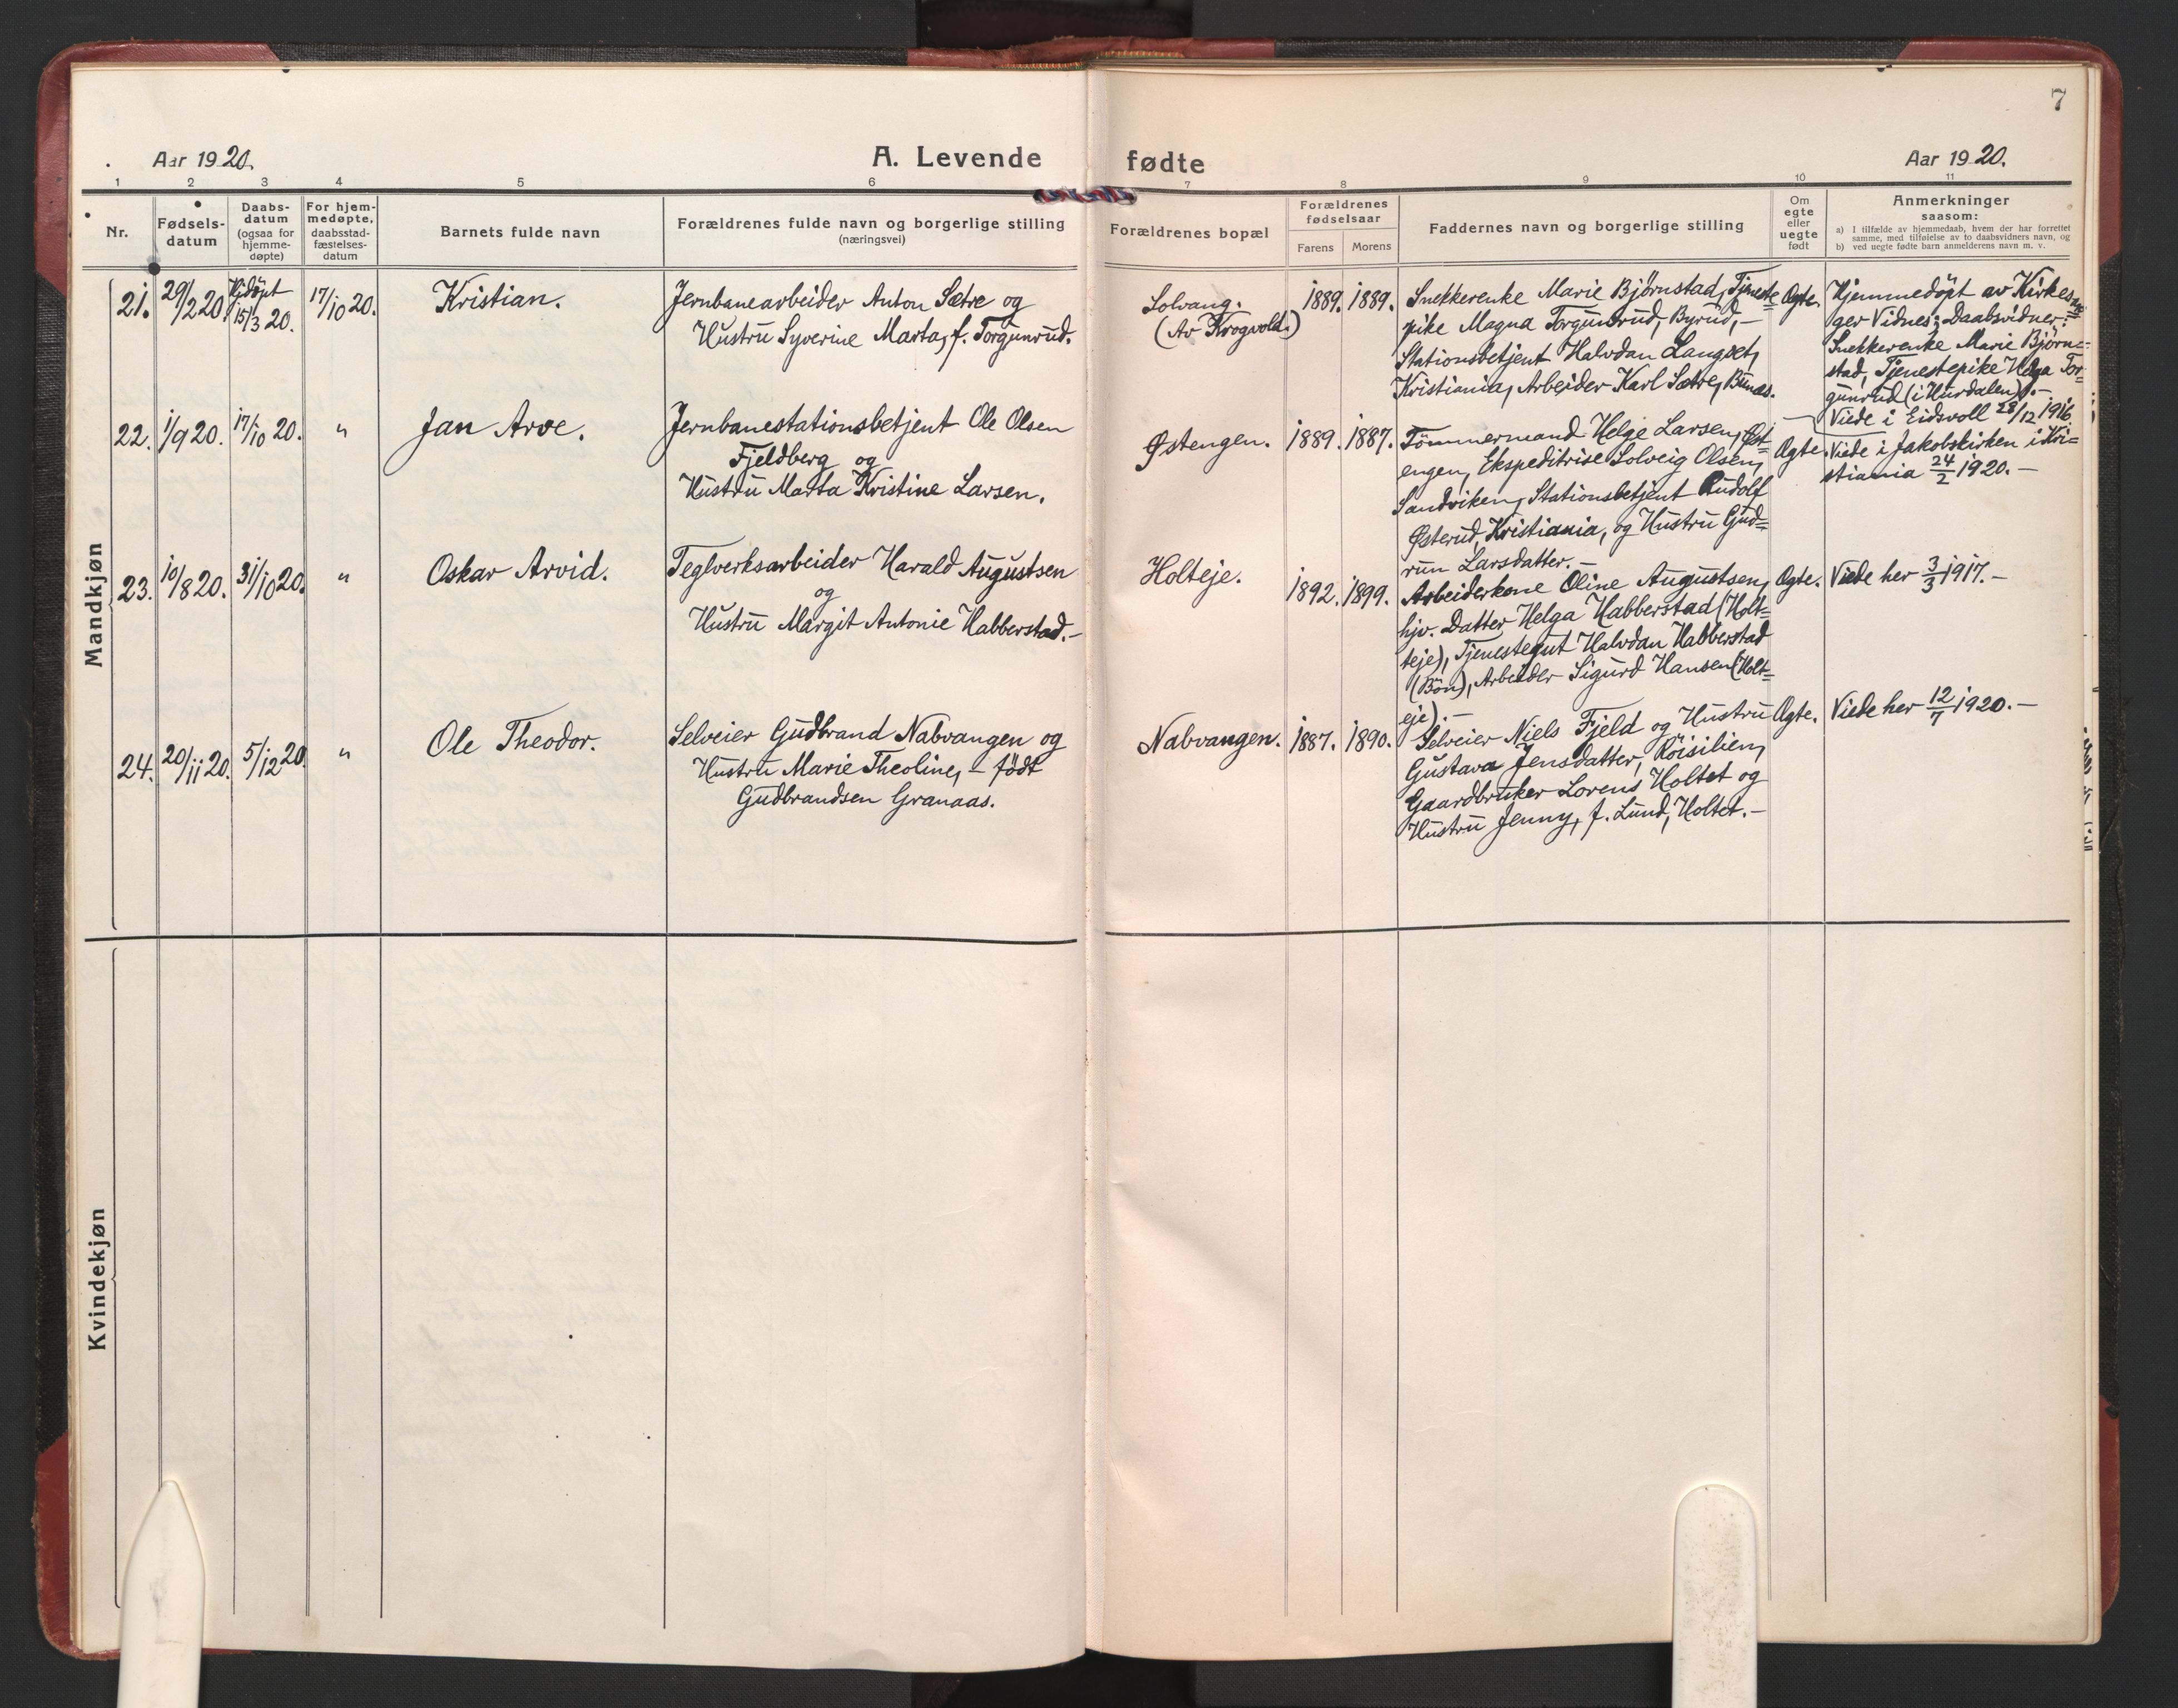 7
Aar 1920.
A. Levende fødte
Aar 1920.
1 2 3 4 5 6 7 8 9 10 11
Nr.
Fødsels-
datum
Daabs-
datum
(ogsaa for
hjemme-
døpte)
For hjem-
medøpte,
daabsstad-
fæstelses-
datum
Barnets fulde navn
Forældrenes fulde navn og borgerlige stilling
(næringsvei)
Forældrenes bopæl
Forældrenes
fødselsaar
Farens Morens
Faddernes navn og borgerlige stilling
Om
egte
eller
uegte
født
Anmerkninger
saasom:
a) I tilfælde av hjemmedaab, hvem der har forrettet
samme, med tilføielse av to daabsvidners navn, og
b) ved uegte fødte barn anmelderens navn m. v.
Mandkjøn
21.
29/2 20.
Hjdöpt
15/3 20.
17/10 20.
Kristian.
Jernbanearbeider Anton Sætre og
Hustru Syverine Marta, f. Torgunrud.
Solvang.
(Av Krogvold.)
1889. 1889.
Snekkerenke Marie Björnstad, Tjeneste=
pike Magna Torgunrud, Byrud, –
Stationsbetjent Halvdan Langset,
Kristiania, Arbeider Karl Sætre, Bunæs.
Ægte.
Hjemmedöpt av Kirkesan=
ger Vidnes; Daabsvidner:
Snekkerenke Marie Björn=
stad, Tjenestepike Helga Tor=
gunrud (i Hurdalen). –
Viede i Eidsvoll 28/12 1916
22.
1/9 20.
17/10 20.
"
Jan Arve.
Jernbanestationsbetjent Ole Olsen
Fjeldberg og
Hustru Marta Kristine Larsen.
Østengen.
1889. 1887.
Tömmermand Helge Larsen, Øst=
engen, Ekspeditrise Solveig Olsen,
Sandviken, Stationsbetjent Rudolf
Østerud, Kristiania, og Hustru Gud=
run Larsdatter. –
Ægte.
Viede i Jakobskirken i Kri=
stiania 24/2 1920. –
23.
10/8 20.
31/10 20.
"
Oskar Arvid.
Teglverksarbeider Harald Augustsen
og
Hustru Margit Antonie Habberstad. –
Holteje.
1892. 1899.
Arbeiderkone Oline Augustsen,
hjv. Datter Helga Habberstad (Holt=
teje), Tjenestegut Halvdan Habberstad
(Bön), Arbeider Sigurd Hansen (Holt=
eje). –
Ægte.
Viede her 3/3 1917. –
24.
20/11 20.
5/12 20.
"
Ole Theodor.
Selveier Gudbrand Nabvangen og
Hustru Marie Theoline, – födt
Gudbrandsen Granaas.
Nabvangen.
1887. 1890.
Selveier Niels Fjeld og Hustru
Gustava Jensdatter, Röisilien,
Gaardbruker Lorens Holtet og
Hustru Jenny, f. Lund, Holtet. –
Ægte.
Viede her 12/7 1920. –
Kvindekjøn